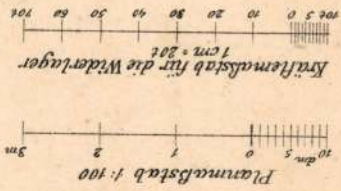 Planmaßstab 1:100
10 dm 5 0 1 2 3m
Kräftemaßstab für die Widerlager
1 cm = 20t
10t 5 0 10 20 30 40 50 60 70t